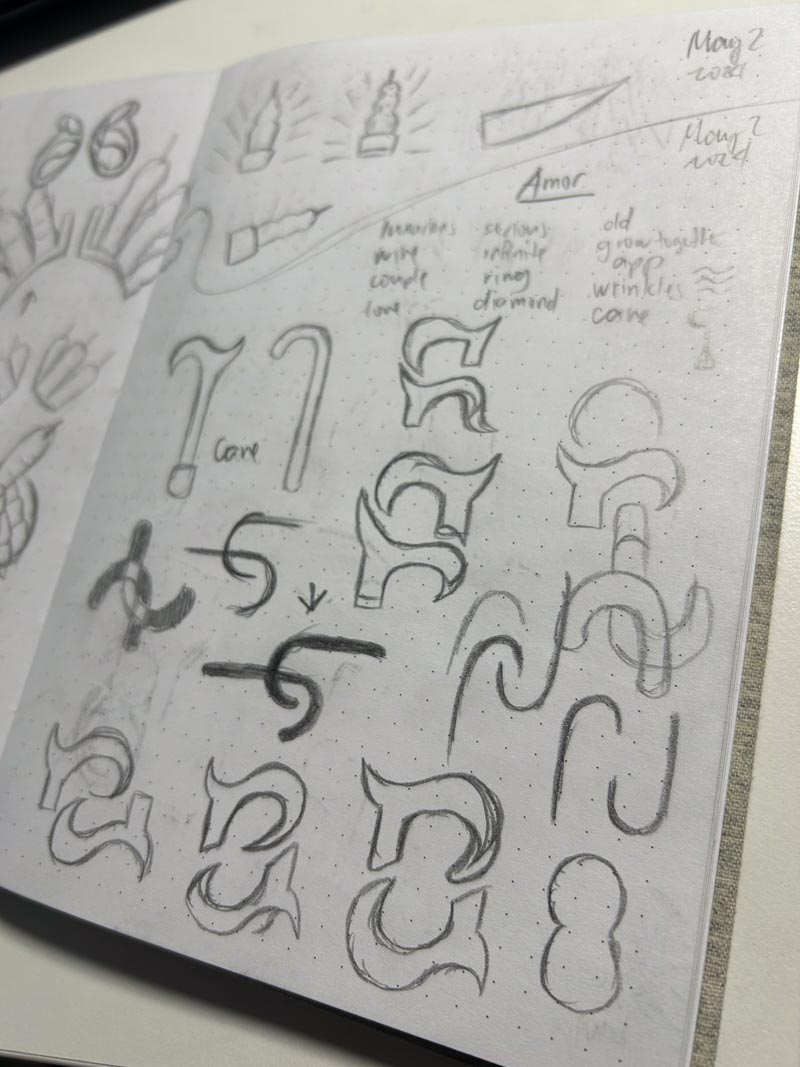 May 2
2024
May 2
2024
Amor
luxurious serious old
wire infinite grow together
couple ring app
love diamond wrinkles
cane
Cane